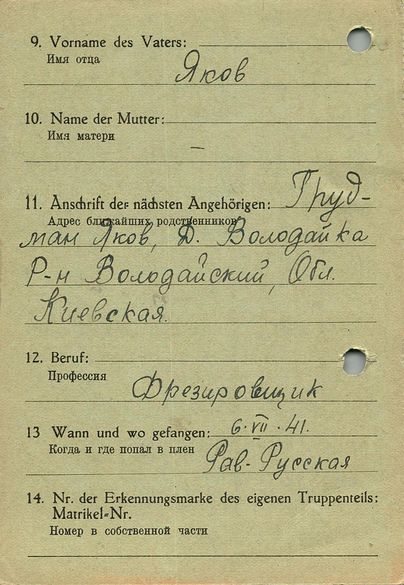 9. Vorname des Vaters:
Имя отца
Яков
10. Name der Mutter:
Имя матери
–
11. Anschrift der nächsten Angehörigen: Груд-
Адрес ближайших родственников
ман Яков, Д. Володайка
Р-н Володайский, Обл.
Киевская.
12. Beruf:
Профессия
Фрезировщик
13 Wann und wo gefangen: 6·VII·41.
Когда и где попал в плен
Рав-Русская
14. Nr. der Erkennungsmarke des eigenen Truppenteils:
Matrikel-Nr.
Номер в собственной части